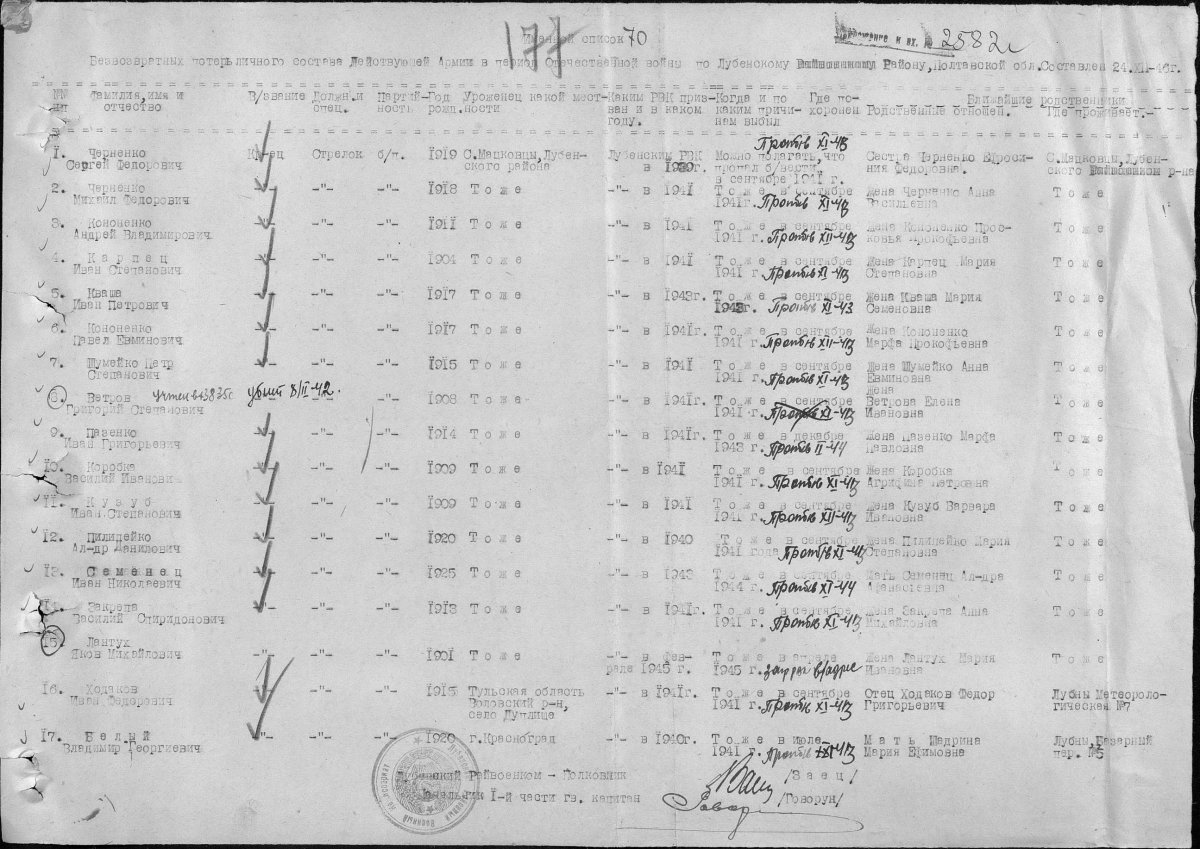 177
Именной список 70
2582с
Безвозвратных потерь личного состава Действующей Армии в период Отечественной войны по Лубенскому Району, Полтавской обл. Составлен 24.XII-46г.
№№ пп Фамилия, имя и отчество В/звание Должн. и спец. Партийности Год рожд. Уроженец какой местности Каким РВК призван и в каком году. Когда и по каким причинам выбыл Где похоронен Ближайшие родственники
Родственные отношен. Где проживает.-
Против XI-43
1. Черненко Кр-ец Стрелок б/п. 1919 С.Мацковцы, Лубен- Лубенским РВК Можно полагать, что Сестра Черненко Ефроси- С.Мацковцы, Лубен-
Сергей Федорович ского района в 1939г. пропал б/вести ния Федоровна. ского р-на
в сентябре 1941 г.
2. Черненко -"- -"- -"- 1918 Тоже -"- в 1941 Тоже в сентябре Жена Черненко Анна Тоже
Михаил Федорович 1941г. Против XI-43 Васильевна
3. Кононенко -"- -"- -"- 1911 Тоже -"- в 1941 Тоже в сентябре Жена Кононенко Прос- Тоже
Андрей Владимирович 1941 г. Против XII-43 ковья Прокофьевна
4. Карпец -"- -"- -"- 1904 Тоже -"- в 1941 Тоже в сентябре Жена Карпец Мария Тоже
Иван Степанович 1941 г. Против XI-43 Степановна
5. Кваша -"- -"- -"- 1917 Тоже -"- в 1943г. Тоже в сентябре Жена Кваша Мария Тоже
Иван Петрович 1943г. Против XI-43 Семеновна
6. Кононенко -"- -"- -"- 1917 Тоже -"- в 1941г. Тоже в сентябре Жена Кононенко Тоже
Павел Евминович 1941 г. Против XII-43 Марфа Прокофьевна
7. Шумейко Петр -"- -"- -"- 1915 Тоже -"- в 1941 Тоже в сентябре Жена Шумейко Анна Тоже
Степанович 1941 г. Против XI-43 Евминовна
Жена
8. Ветров Учтен в 43835с убит 8/II-42. -"- -"- 1908 Тоже -"- в 1941г. Тоже в сентябре Ветрова Елена Тоже
Григорий Степанович 1941 г. Против XI-43 Ивановна
9. Пазенко -"- -"- -"- 1914 Тоже -"- в 1941г. Тоже в декабре Жена Пазенко Марфа Тоже
Иван Григорьевич 1943 г. Против II-44 Павловна
10. Коробка -"- -"- -"- 1909 Тоже -"- в 1941 Тоже в сентябре Жена Коробка Тоже
Василий Иванович 1941 г. Против XI-43 Агрифина Петровна
11. Кузуб -"- -"- -"- 1909 Тоже -"- в 1941 Тоже в сентябре Жена Кузуб Варвара Тоже
Иван Степанович 1941 г. Против XII-43 Ивановна
12. Пилипейко -"- -"- -"- 1920 Тоже -"- в 1940 Тоже в сентябре Жена Пилипейко Мария Тоже
Ал-др Данилович 1941 года Против XI-43 Степановна
13. Семенец -"- -"- -"- 1925 Тоже -"- в 1943 Тоже в сентябре Мать Семенец Ал-дра Тоже
Иван Николаевич 1944 г. Против XI-44 Афанасьевна
14. Закрепа -"- -"- -"- 1913 Тоже -"- в 1941г. Тоже в сентябре Жена Закрепа Анна Тоже
Василий Спиридонович 1941 г. Против XI-43 Михайловна
15. Лантух -"- -"- -"- 1901 Тоже -"- в фев- Тоже в апреле Жена Лантух Мария Тоже
Яков Михайлович рале 1945 г. 1945 г. Ивановна
16. Ходаков -"- -"- -"- 1915 Тульская область -"- в 1941г. Тоже в сентябре Отец Ходаков Федор Лубны Метеороло-
Иван Федорович Воловский р-н, 1941 г. Против XI-43 Григорьевич гическая №7
село Дуплище
17. Белый -"- -"- -"- 1920 г.Красноград -"- в 1940г. Тоже в июле Мать Шадрина Лубны, Базарный
Владимир Георгиевич 1941 г. Против IX-43 Мария Ефимовна пер. №5
Лубенский Райвоенком - Полковник /Заец/
Начальник 1-й части гв. капитан /Говорун/